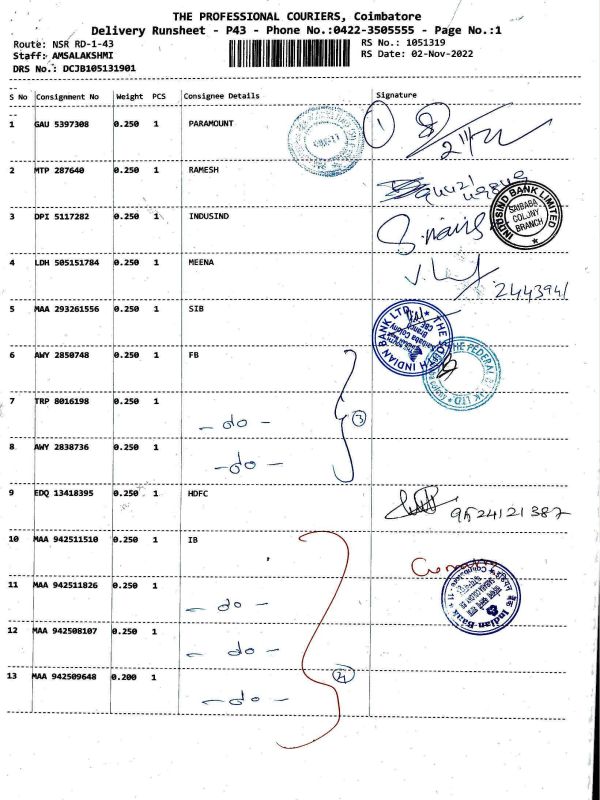 THE PROFESSIONAL COURIERS, Coimbatore
Delivery Runsheet - P43 - Phone No.:0422-3505555 - Page No.:1
Route: NSR RD-1-43
RS No.: 1051319
Staff: AMSALAKSHMI
RS Date: 02-Nov-2022
DRS No.: DCJB105131901
S No Consignment No Weight PCS Consignee Details Signature
1 GAU 5397308 0.250 1 PARAMOUNT 1
2 MTP 287640 0.250 1 RAMESH
3 DPI 5117282 0.250 1 INDUSIND
INDUSIND BANK LIMITED
SAIBABA
COLONY
BRANCH
4 LDH 505151784 0.250 1 MEENA
2443941
5 MAA 293261556 0.250 1 SIB
THE SOUTH INDIAN BANK LTD
6 AWY 2850748 0.250 1 FB
THE FEDERAL BANK LTD
7 TRP 8016198 0.250 1 - do - 3
8 AWY 2838736 0.250 1 - do -
9 EDQ 13418395 0.250 1 HDFC 9524121387
10 MAA 942511510 0.250 1 IB
Indian Bank
11 MAA 942511826 0.250 1 - do -
12 MAA 942508107 0.250 1 - do -
13 MAA 942509648 0.200 1 - do - 4